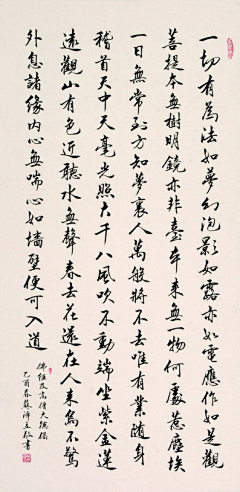 一切有為法如夢幻泡影如露亦如電應作如是觀
菩提本無樹明鏡亦非臺本来無一物何處惹塵埃
一日無常到方知夢裏人萬般將不去唯有業随身
稽首天中天毫光照大千八風吹不動端坐紫金蓮
遠觀山有色近聽水無聲春去花還在人来鳥不驚
外息諸緣内心無喘心如墙壁便可入道
佛經及高僧大德偈
乙酉春蘇澤立敬書